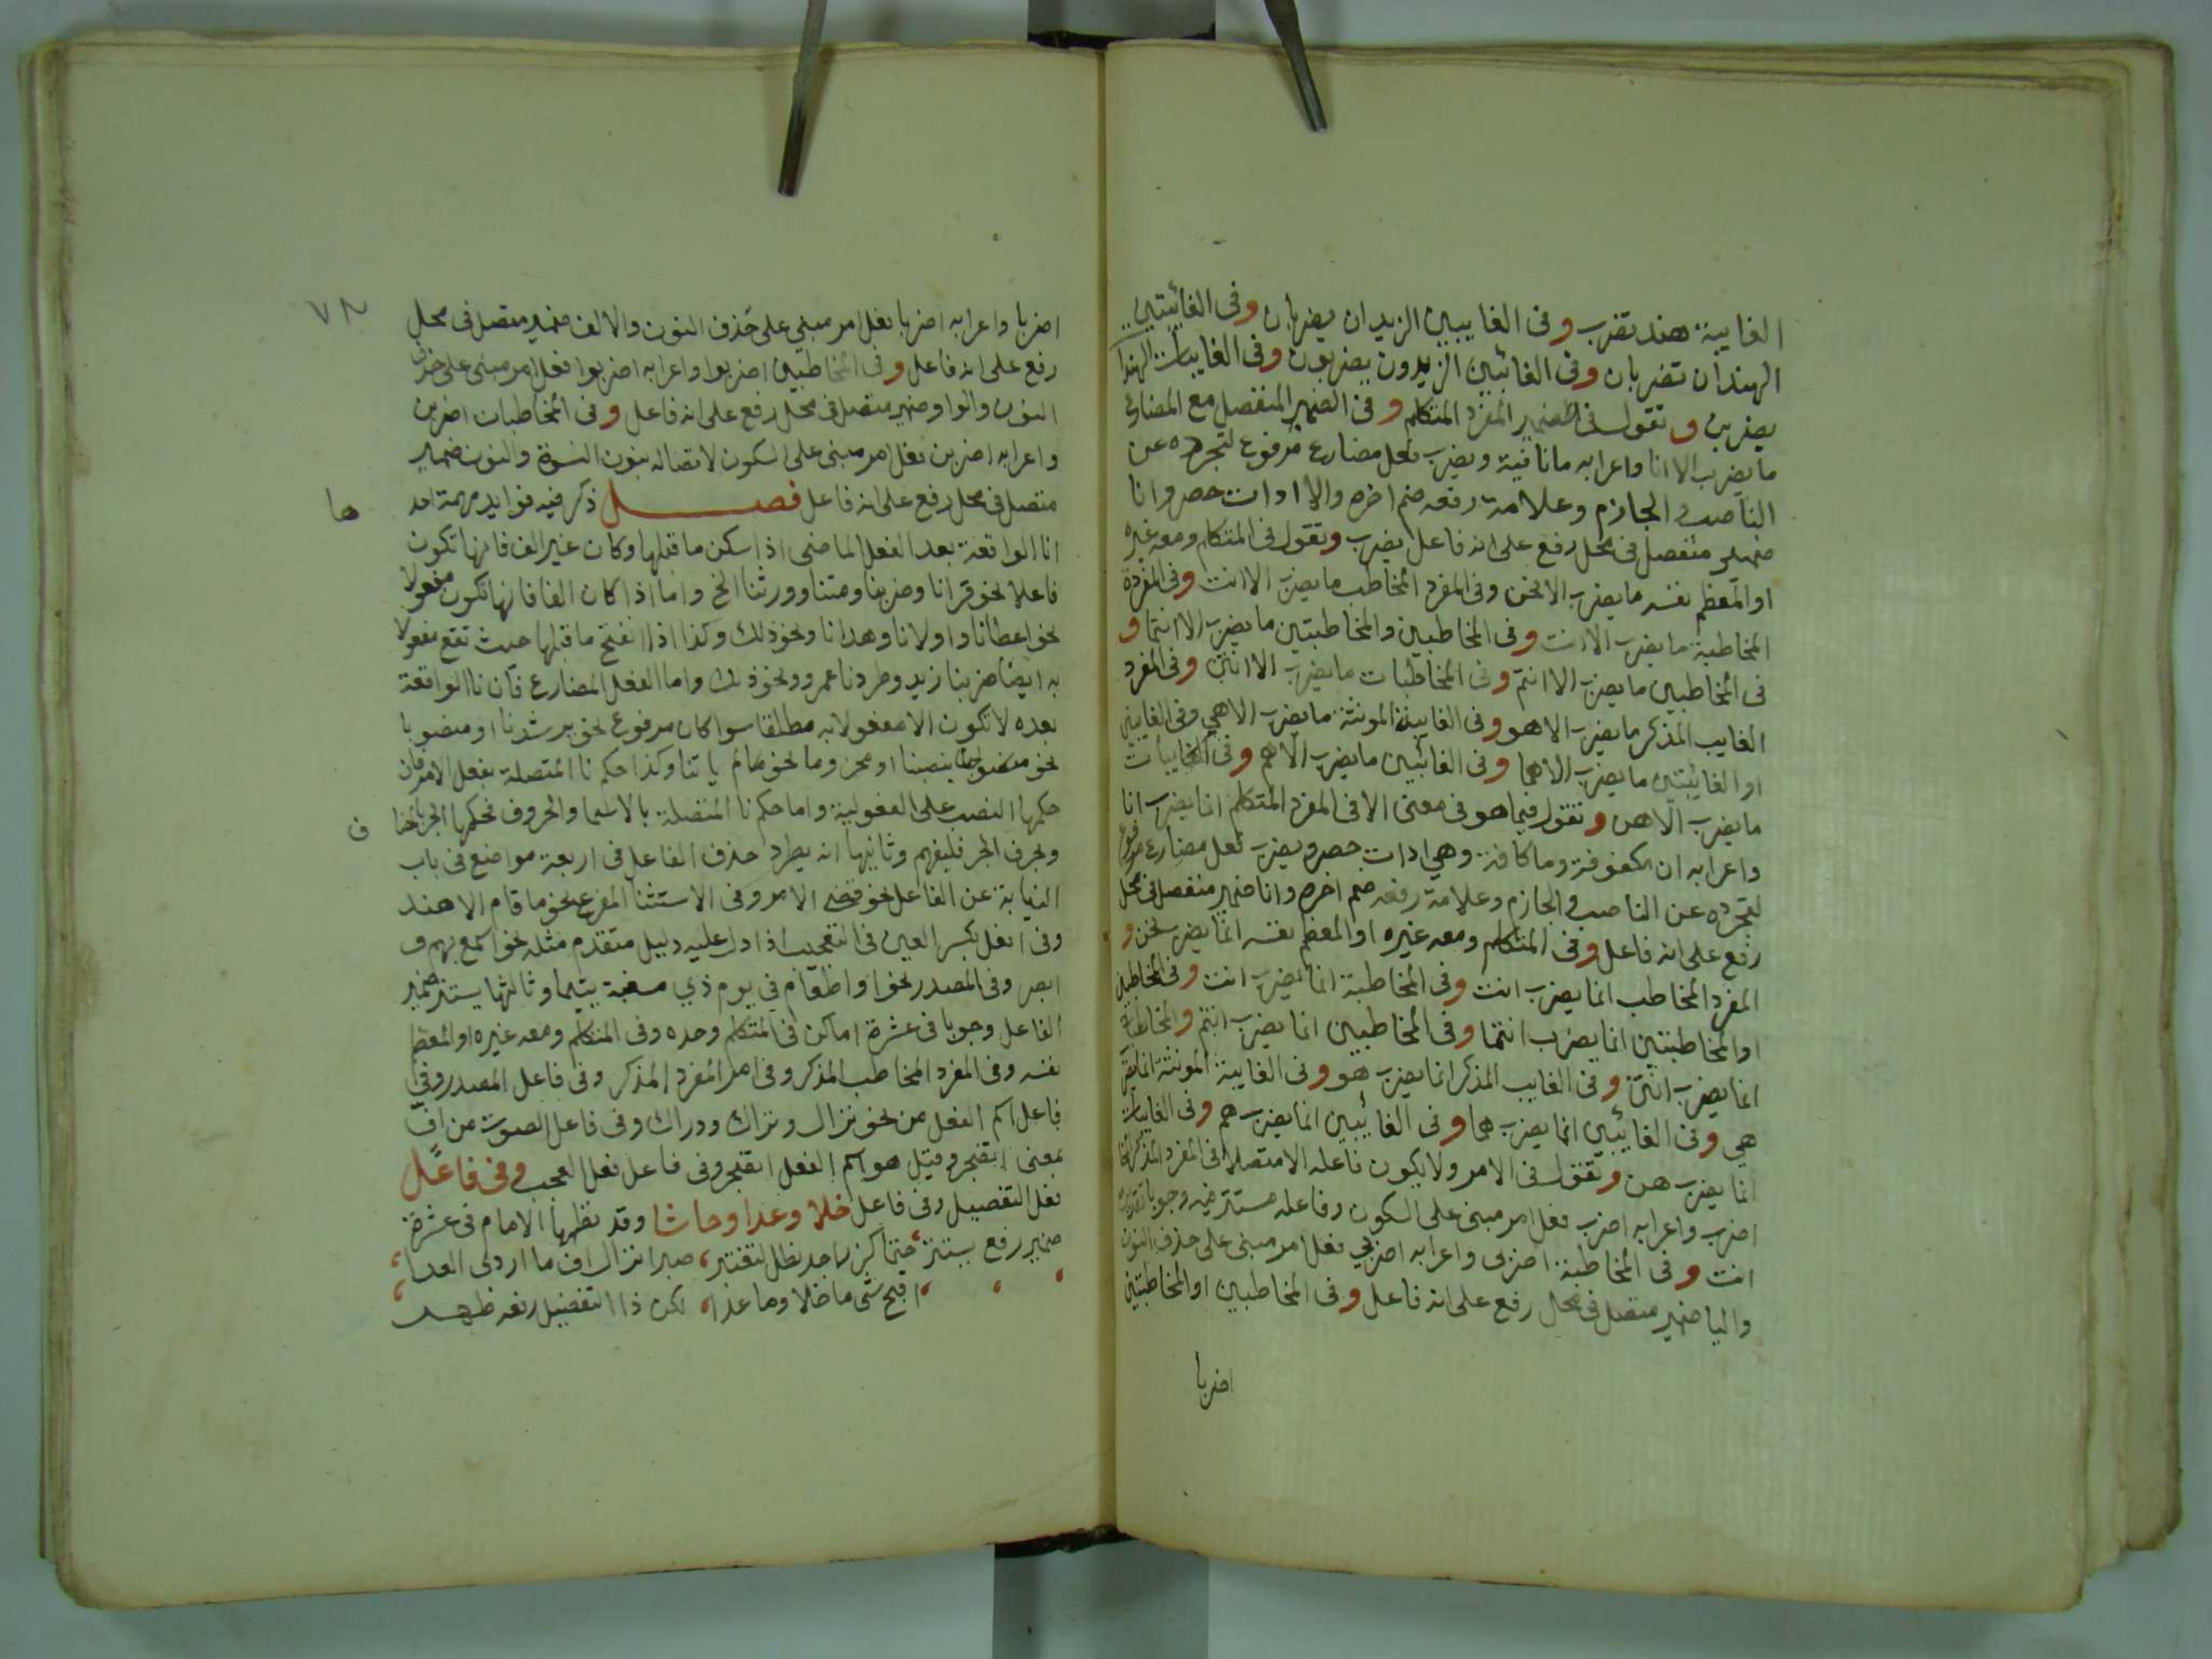 الغايبة هند تضرب وفى الغايبين الزيدان يضربان وفى الغائبتين
الهندان تضربان وفى الغائبين الزيدون يضربون وفى الغايبات الهندات
يضربن وتقول فى الضمير المفرد المتكلم وفى الضمير المنفصل مع المضارع
ما يضرب الا انا واعرابه ما نافية ويضرب فعل مضارع مرفوع لتجرده عن
الناصب والجازم وعلامة رفعه ضم اخره والا ادات حصر وانا
ضمير منفصل فى محل رفع على انه فاعل يضرب وتقول فى المتكلم ومعه غيره
او المعظم نفسه ما يضرب الا نحن وفى المفرد المخاطب ما يضرب الا انت وفى المفردة
المخاطبة ما يضرب الا انت وفى المخاطبين والمخاطبتين ما يضرب الا انتما و
فى المخاطبين ما يضرب الا انتم وفى المخاطبات ما يضرب الا انتن وفى المفرد
الغايب المذكر ما يضرب الا هو وفى الغايبة المونثة ما يضرب الا هي وفى الغايبين
او الغايبتين ما يضرب الا هما وفى الغائبين ما يضرب الا هم وفى الغايبات
ما يضرب الا هن وتقول فيما هو فى معنى الا فى المفرد المتكلم انما يضرب انا
واعرابه ان مكفوفة وما كافة وهي ادات حصر ويضرب فعل مضارع مرفوع
لتجرده عن الناصب والجازم وعلامة رفعه ضم اخره وانا ضمير منفصل فى محل
رفع على انه فاعل وفى المتكلم ومعه غيره او المعظم نفسه انما يضرب نحن و
المفرد المخاطب انما يضرب انت وفى المخاطبة انما يضرب انت وفى المخاطبين
او المخاطبتين انما يضرب انتما وفى المخاطبين انما يضرب انتم والمخاطبات
انما يضرب انتن وفى الغايب المذكر انما يضرب هو وفى الغايبة المونثة انما يضرب
هي وفى الغائبين انما يضرب هما وفى الغائبين انما يضرب هم وفى الغايبات
انما يضرب هن وتقول فى الامر ولا يكون فاعله الا متصلا فى المفرد المذكر
اضرب واعرابه اضرب فعل امر مبنى على السكون وفاعله مستتر فيه وجوبا تقديره
انت وفى المخاطبة اضربى واعرابه اضربي فعل امر مبنى على حذف النون
واليا ضمير متصل فى محل رفع على انه فاعل وفى المخاطبين او المخاطبتين
اضربا
اضربا واعرابه اضربا فعل امر مبنى على حذف النون والالف ضمير متصل فى محل
رفع على انه فاعل وفى المخاطبين اضربوا واعرابه اضربوا فعل امر مبنى على حذف
النون والواو ضمير متصل فى محل رفع على انه فاعل وفى المخاطبات اضربن
واعرابه اضربن فعل امر مبنى على السكون لاتصاله بنون النسوة والنون ضمير
متصل فى محل رفع على انه فاعل فصل ذكر فيه فوايد مهمة احد
ها
انا الواقعة بعد الفعل الماضى اذا سكن ما قبلها وكان غير الف فانها تكون
فاعلا نحو قرانا وضربنا ومتنا وورثنا الخ واما اذا كان الفا فانها تكون مفعولا
نحو اعطانا واولانا وهدانا ونحو ذلك وكذا اذا انفتح ما قبلها حيث تقع مفعولا
به ايضا ضربنا زيد وطردنا عمرو ونحو ذلك واما الفعل المضارع فان نا الواقعة
بعده لا تكون الا مفعولا به مطلقا سوا كان مرفوع نحو يرشدنا او منصوبا
نحو يصيبنا او مجزوما نحو ياتنا وكذا حكم نا المتصلة بفعل الامر فان
حكمها النصب على المفعولية واما حكم نا المتصلة بالاسما والحروف فحكمها الجر
ف
وبحرف الجر فليفهم وثانيها انه يطرد حذف الفاعل فى اربعة مواضع فى باب
النيابة عن الفاعل نحو قضى الامر وفى الاستثنا المفرغ نحو ما قام الا هند
وفى افعل بكسر العين فى التعجب اذا دل عليه دليل متقدم مثله نحو اسمع بهم و
ابصر وفى المصدر نحو او اطعام في يوم ذي مسغبة يتيما وثالثها يستتر ضمير
الفاعل وجوبا فى عشرة اماكن فى المتكلم وحده وفى المتكلم ومعه غيره او المعظم
نفسه وفى المفرد المخاطب المذكر وفى امر المفرد المذكر وفى فاعل المصدر وفى
فاعل اسم الفعل من نحو نزال وتراك ودراك وفى فاعل الصوت من اف
بمعنى اتضجر وقيل هو اسم الفعل اتضجر وفى فاعل فعل العجب وفى فاعل
فعل التفضيل وفى فاعل خلا وعدا وحاشا وقد نظمها الامام فى عشرة
ضمير رفع يستتر حتما صبرا نزال اف ما اردى العدا
اقبح شى ما خلا وما عدا لكن ذا التفضيل رفعه ظهر